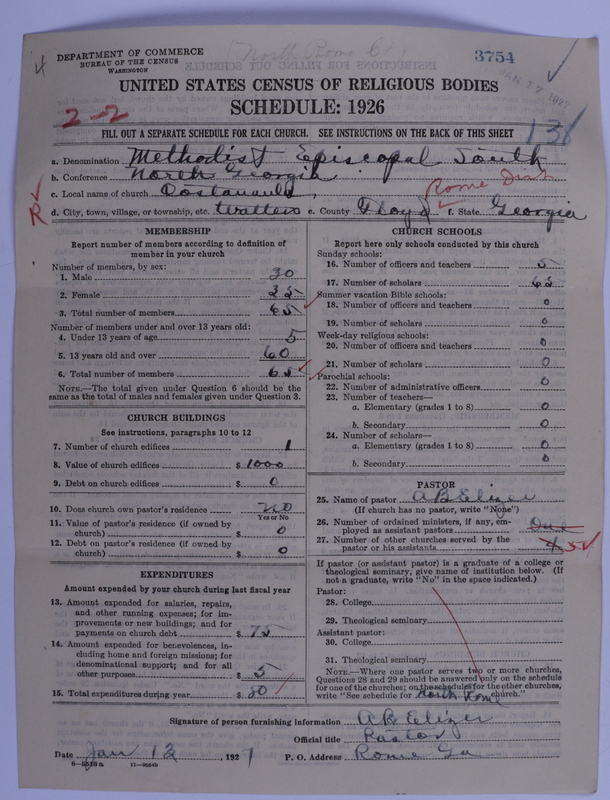 (North Rome Ct.)
4
DEPARTMENT OF COMMERCE
BUREAU OF THE CENSUS
WASHINGTON
3754
JAN 17 1927
UNITED STATES CENSUS OF RELIGIOUS BODIES
SCHEDULE: 1926
2-2
FILL OUT A SEPARATE SCHEDULE FOR EACH CHURCH. SEE INSTRUCTIONS ON THE BACK OF THIS SHEET
138
a. Denomination Methodist Episcopal South
b. Conference North Georgia
c. Local name of church Oostanaula, Rome Dist
d. City, town, village, or township, etc. Watters e. County Floyd f. State Georgia
R
MEMBERSHIP
Report number of members according to definition of
member in your church
Number of members, by sex:
1. Male 30
2. Female 35
3. Total number of members 65
Number of members under and over 13 years old:
4. Under 13 years of age 5
5. 13 years old and over 60
6. Total number of members 65
NOTE.—The total given under Question 6 should be the
same as the total of males and females given under Question 3.
CHURCH BUILDINGS
See instructions, paragraphs 10 to 12
7. Number of church edifices 1
8. Value of church edifices $ 1000
9. Debt on church edifices $ 0
10. Does church own pastor's residence no
Yes or No
11. Value of pastor's residence (if owned by
church) $ 0
12. Debt on pastor's residence (if owned by
church) $ 0
EXPENDITURES
Amount expended by your church during last fiscal year
13. Amount expended for salaries, repairs,
and other running expenses; for im-
provements or new buildings; and for
payments on church debt $ 75
14. Amount expended for benevolences, in-
cluding home and foreign missions; for
denominational support; and for all
other purposes $ 5
15. Total expenditures during year $ 80
CHURCH SCHOOLS
Report here only schools conducted by this church
Sunday schools:
16. Number of officers and teachers 5
17. Number of scholars 62
Summer vacation Bible schools:
18. Number of officers and teachers 0
19. Number of scholars 0
Week-day religious schools:
20. Number of officers and teachers 0
21. Number of scholars 0
Parochial schools:
22. Number of administrative officers 0
23. Number of teachers—
a. Elementary (grades 1 to 8) 0
b. Secondary 0
24. Number of scholars—
a. Elementary (grades 1 to 8) 0
b. Secondary 0
PASTOR
25. Name of pastor A B Elizer
(If church has no pastor, write "None")
26. Number of ordained ministers, if any, em-
ployed as assistant pastors One
27. Number of other churches served by the
pastor or his assistants 4 5
If pastor (or assistant pastor) is a graduate of a college or
theological seminary, give name of institution below. (If
not a graduate, write "No" in the space indicated.)
Pastor:
28. College
29. Theological seminary
Assistant pastor:
30. College
31. Theological seminary
NOTE.—Where one pastor serves two or more churches,
Questions 28 and 29 should be answered only on the schedule
for one of the churches; on the schedule for the other churches,
write "See schedule for North Rome church."
Signature of person furnishing information A B Elizer
Official title Pastor
Date Jan 12, 1927 P. O. Address Rome Ga
8-5518a 11-9564b